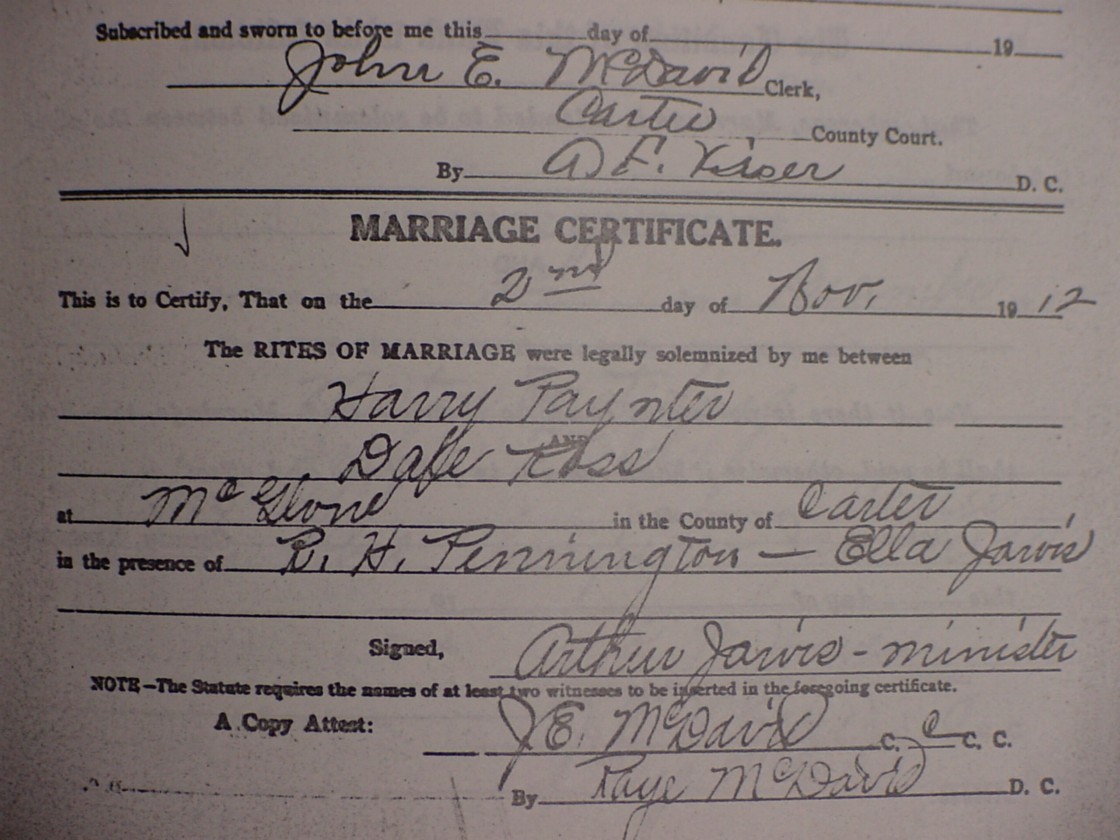 Subscribed and sworn to before me this day of 19
John E. McDavid Clerk,
Carter County Court.
By A F. Kiser D. C.
MARRIAGE CERTIFICATE.
This is to Certify, That on the 2nd day of Nov. 1912
The RITES OF MARRIAGE were legally solemnized by me between
Harry Paynter
AND
Dafe Ross
at McGlone in the County of Carter
in the presence of R. H. Pennington — Ella Jarvis
Signed, Arthur Jarvis - minister
NOTE—The Statute requires the names of at least two witnesses to be inserted in the foregoing certificate.
A Copy Attest: J E. McDavid C. C. C. C.
By Raye McDavid D. C.